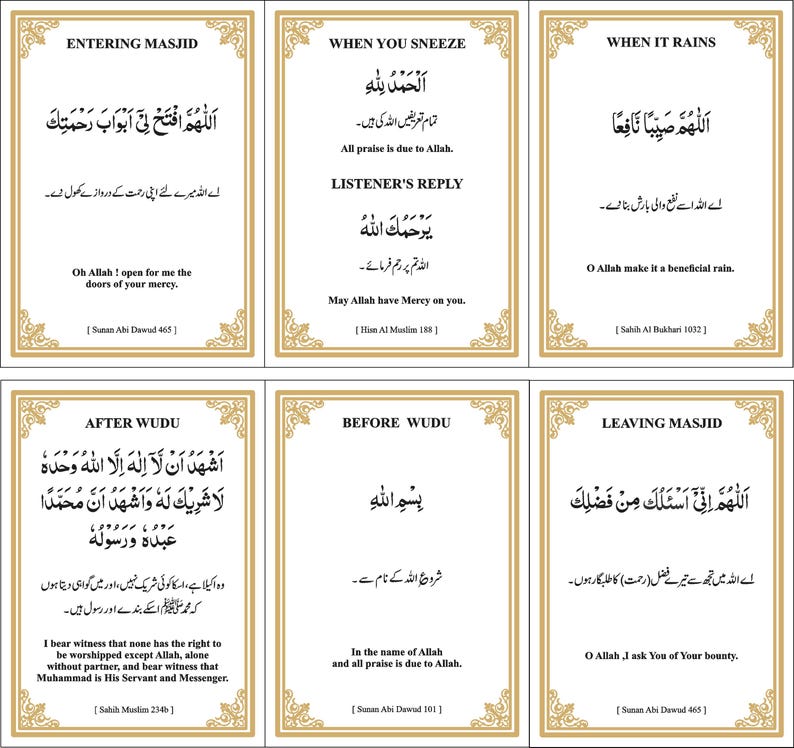 ENTERING MASJID
اَللّٰهُمَّ افْتَحْ لِيْٓ اَبْوَابَ رَحْمَتِكَ
اے اللہ میرے لئے اپنی رحمت کے دروازے کھول دے۔
Oh Allah ! open for me the
doors of your mercy.
[ Sunan Abi Dawud 465 ]
WHEN YOU SNEEZE
اَلْحَمْدُ لِلّٰهِ
تمام تعریفیں اللہ کی ہیں۔
All praise is due to Allah.
LISTENER'S REPLY
يَرْحَمُكَ اللّٰهُ
اللہ تم پر رحم فرمائے۔
May Allah have Mercy on you.
[ Hisn Al Muslim 188 ]
WHEN IT RAINS
اَللّٰهُمَّ صَيِّبًا نَّافِعًا
اے اللہ اسے نفع والی بارش بنا دے۔
O Allah make it a beneficial rain.
[ Sahih Al Bukhari 1032 ]
AFTER WUDU
اَشْهَدُ اَنْ لَّآ اِلٰهَ اِلَّا اللّٰهُ وَحْدَهٗ
لَا شَرِيْكَ لَهٗ وَاَشْهَدُ اَنَّ مُحَمَّدًا
عَبْدُهٗ وَرَسُوْلُهٗ
وہ اکیلا ہے، اسکا کوئی شریک نہیں، اور میں گواہی دیتا ہوں
کہ محمد ﷺ اسکے بندے اور رسول ہیں۔
I bear witness that none has the right to
be worshipped except Allah, alone
without partner, and bear witness that
Muhammad is His Servant and Messenger.
[ Sahih Muslim 234b ]
BEFORE WUDU
بِسْمِ اللّٰهِ
شروع اللہ کے نام سے۔
In the name of Allah
and all praise is due to Allah.
[ Sunan Abi Dawud 101 ]
LEAVING MASJID
اَللّٰهُمَّ اِنِّيْٓ اَسْئَلُكَ مِنْ فَضْلِكَ
اے اللہ میں تجھ سے تیرے فضل (رحمت) کا طلبگار ہوں۔
O Allah ,I ask You of Your bounty.
[ Sunan Abi Dawud 465 ]